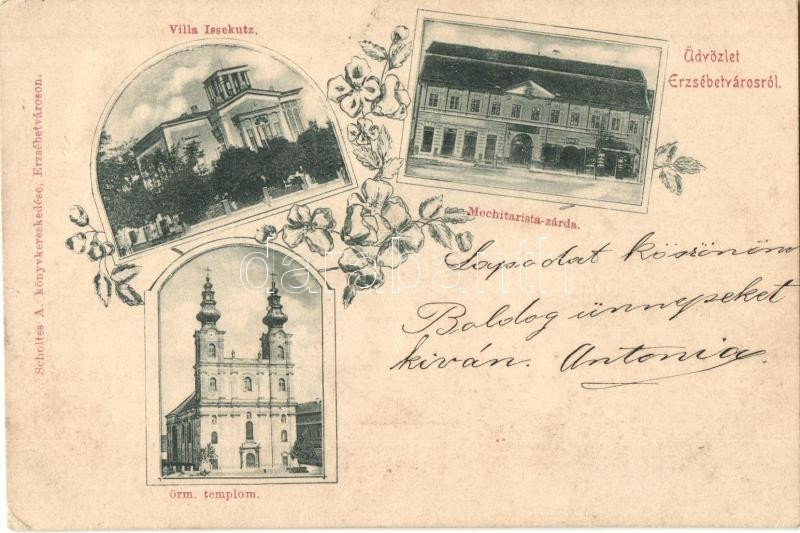 Villa Issekutz.
Üdvözlet
Erzsébetvárosról.
Scholtes A. könyvkereskedése, Erzsébetvároson.
Mechitarista-zárda.
Lapodat köszönöm
Boldog ünnepeket
kiván. Antonia
örm. templom.
darabanth